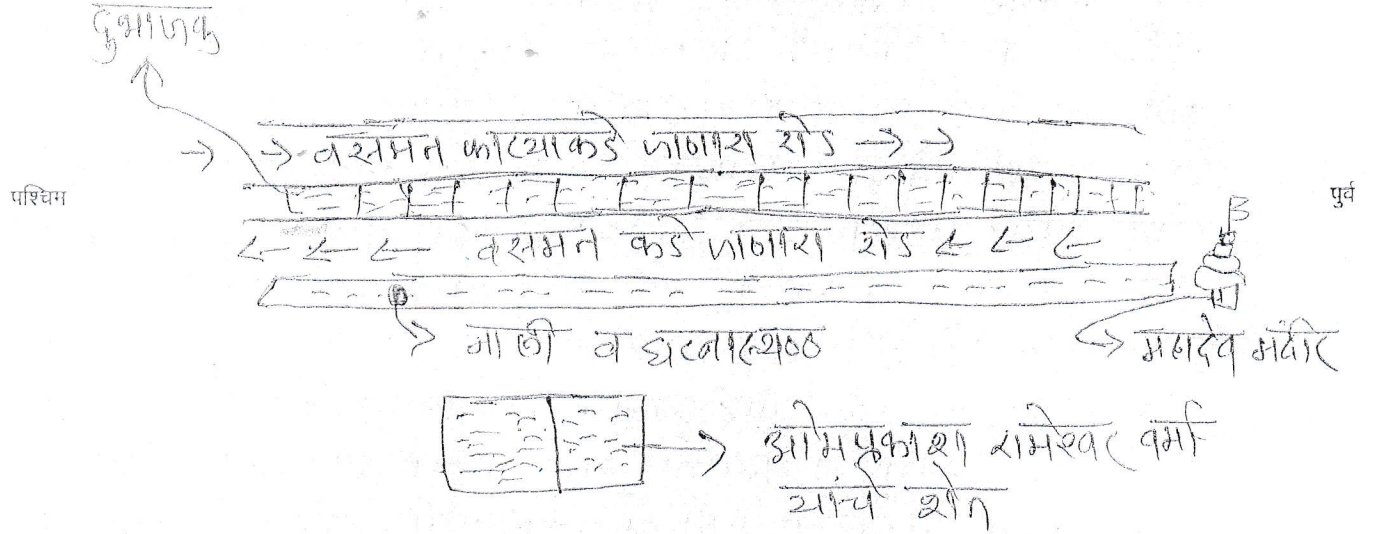 दुभाजक
वसमत फाट्याकडे जाणारा रोड
पश्चिम
पुर्व
वसमत कडे जाणारा रोड
नाली व घटनास्थळ
महादेव मंदीर
ओमप्रकाश रामेश्वर वर्मा
यांचे शेत